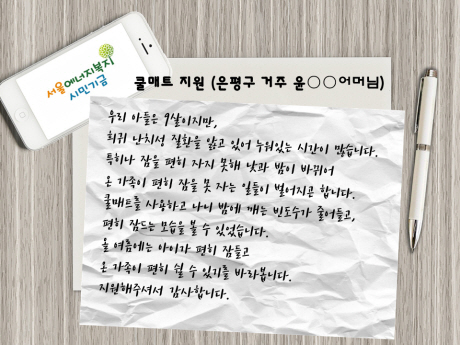 서울에너지복지
시민기금
쿨매트 지원 (은평구 거주 윤○○어머님)
우리 아들은 9살이지만,
희귀 난치성 질환을 앓고 있어 누워있는 시간이 많습니다.
특히나 잠을 편히 자지 못해 낮과 밤이 바뀌어
온 가족이 편히 잠을 못 자는 일들이 벌어지곤 합니다.
쿨매트를 사용하고 나니 밤에 깨는 빈도수가 줄어들고,
편히 잠드는 모습을 볼 수 있었습니다.
올 여름에는 아이가 편히 잠들고
온 가족이 편히 쉴 수 있기를 바라봅니다.
지원해주셔서 감사합니다.